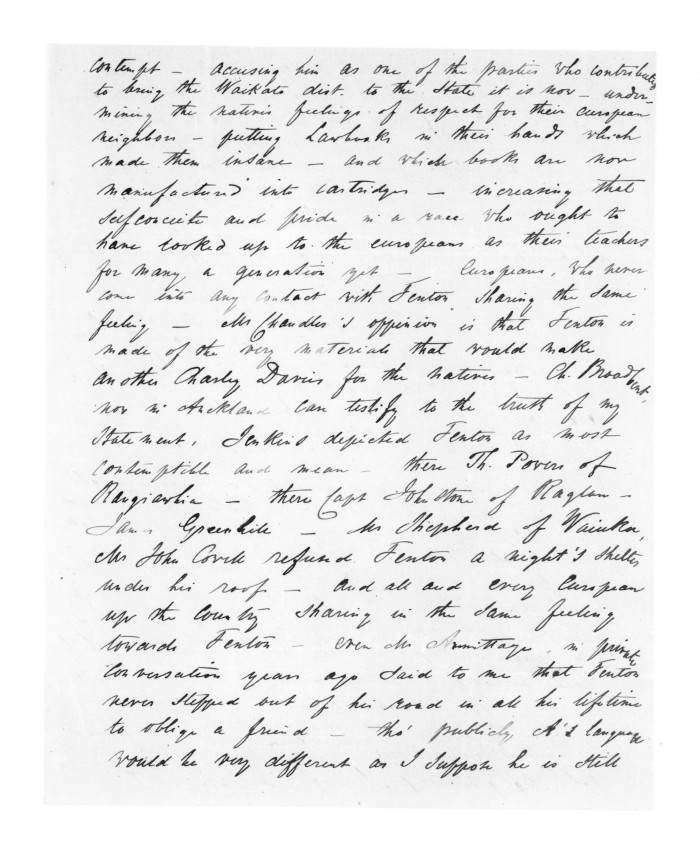 contempt – accusing him as one of the parties who contributed
to bring the Waikato dist. to the State it is now – under-
mining the native's feelings of respect for their european
neighbors – putting Lawbooks in their hands which
made them insane – and which books are now
manufactured into cartridges – increasing that
selfconceite and pride in a race who ought to
have looked up to the europeans as their teachers
for many a generation yet – Europeans, who never
come into any contact with Fenton sharing the same
feeling – Mr Chandler's oppinion is that Fenton is
made of the very materials that would make
another Charley Davis for the natives – Ch. Broadbent,
now in Auckland can testify to the truth of my
Statement, Jenkins depicted Fenton as most
contemptible and mean – there Th. Povers of
Rangiawhia – there Capt Johnstone of Raglan –
James Greenhill – Mr Shepherd of Waiuku,
Mr John Covell refused Fenton a night's shelter
under his roof – and all and every European
up the Country sharing in the same feeling
towards Fenton – even Mr Armittage, in private
Conversation years ago said to me that Fenton
never stepped out of his road in all his lifetime
to oblige a friend – tho' publicly A's language
would be very different as I suppose he is still